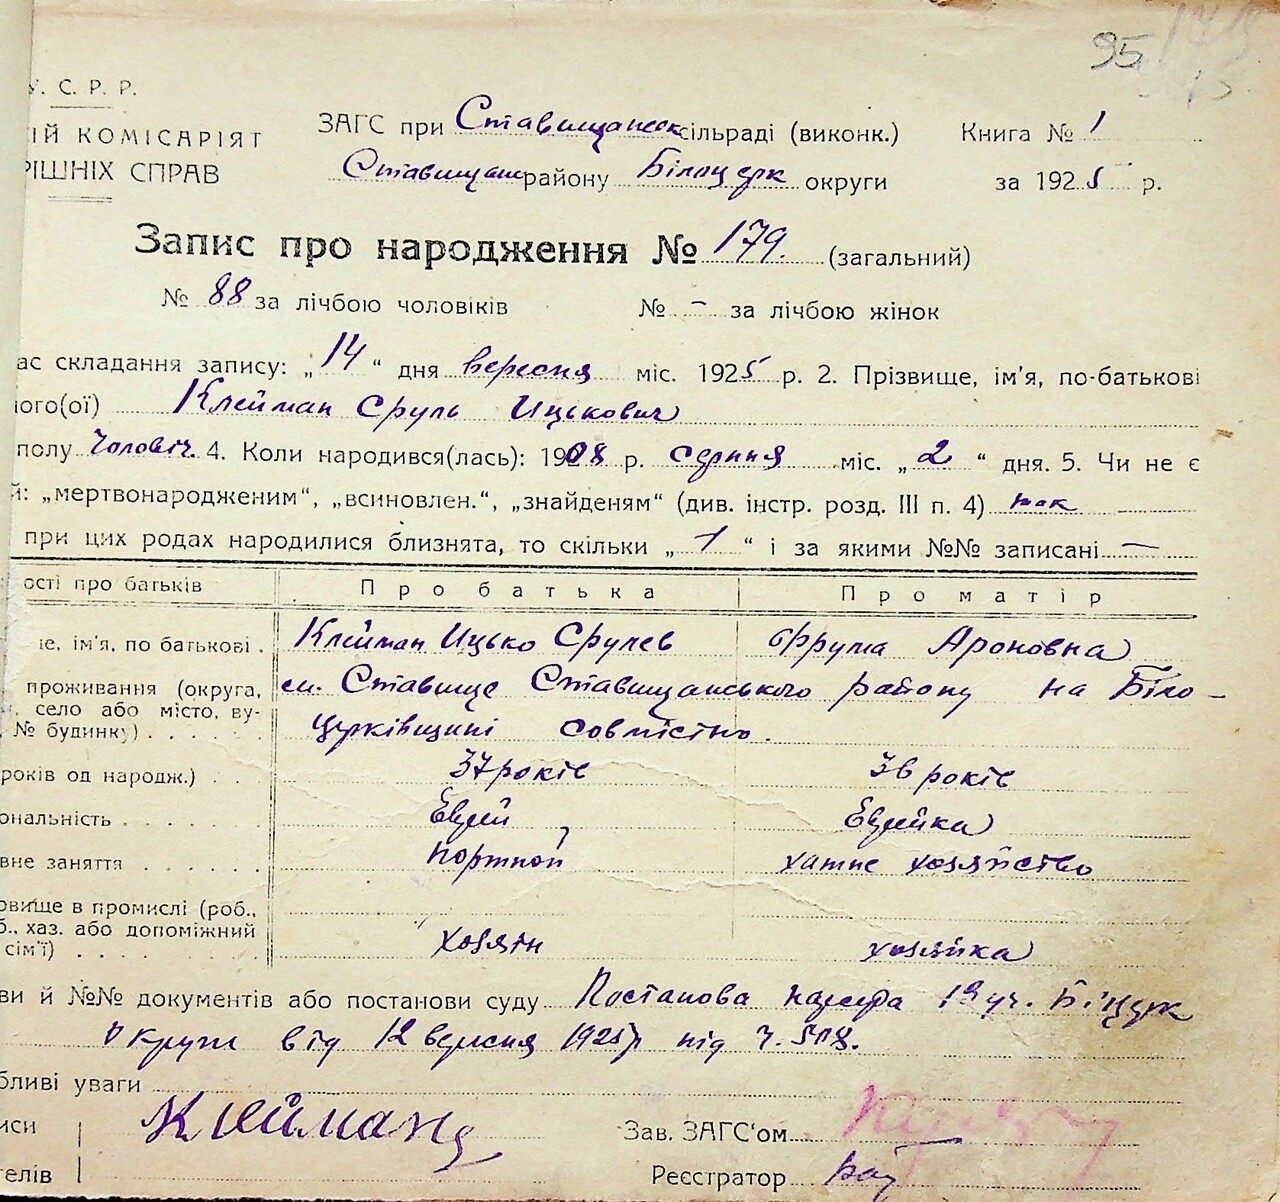 95
У. С. Р. Р.
ІЙ КОМІСАРІЯТ
РІШНІХ СПРАВ
ЗАГС при Ставищанск сільраді (виконк.) Книга № 1
Ставищан району Білоцерк округи за 1925 р.
Запис про народження № 179. (загальний)
№ 88 за лічбою чоловіків № - за лічбою жінок
ас складання запису: „14“ дня вересня міс. 1925 р. 2. Прізвище, ім'я, по-батькові
ого(ої) Клейман Сруль Ицькович
полу чоловіч. 4. Коли народився(лась): 1908 р. серпня міс. „2“ дня. 5. Чи не є
й: „мертвонародженим“, „всиновлен.“, „знайденям“ (див. інстр. розд. III п. 4)
при цих родах народилися близнята, то скільки „1“ і за якими №№ записані —
ості про батьків Про батька Про матір
не, ім'я, по батькові . Клейман Ицько Срулев Фрума Ароновна
проживання (округа, см. Ставище Ставищанського району на Біло-
, село або місто, ву-
№ будинку) . . . . . . Церківщині совмістно.
років од народж.) . . 37 років 36 років
ональність . . . . . . Еврей Еврейка
вне заняття . . . . . . портной хатне хозяйство
овище в промислі (роб.,
б., хаз. або допоміжний
сім'ї) . . . . хозяін хозяйка
ви й №№ документів або постанови суду Постанова нарсуда 19 уч. Білцерк
Округи від 12 вересня 1925 р під ч. 508.
бливі уваги
иси Клейман Зав. ЗАГС'ом
телів Реєстратор